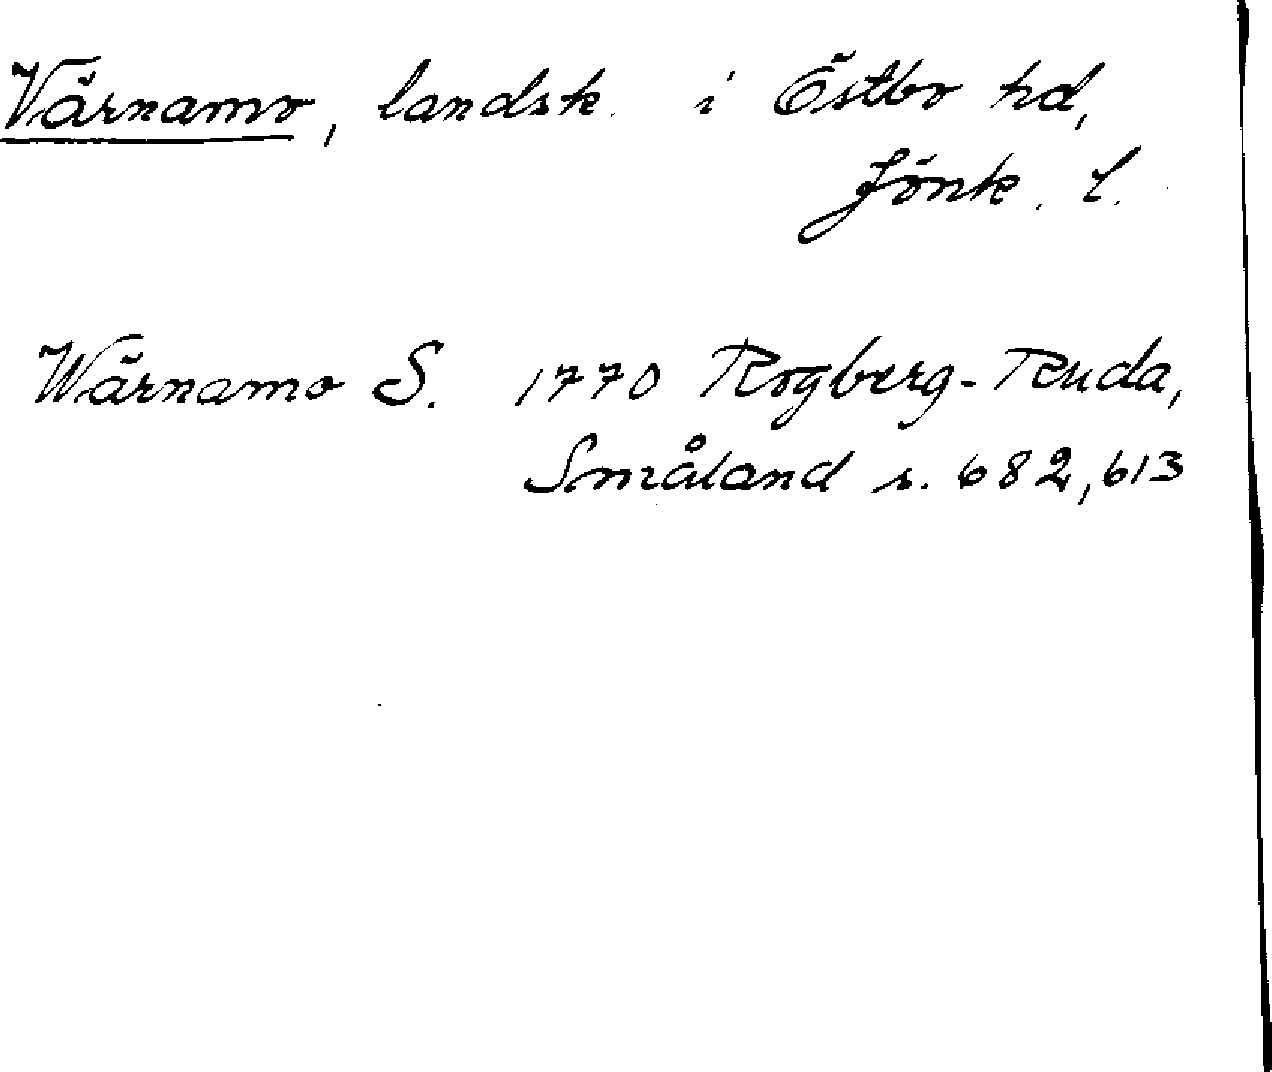 Värnamo, landsk. i Östbo hd,
Jönk. l.
Wärnamo S. 1770 Rogberg-Ruda,
Småland s. 682, 613